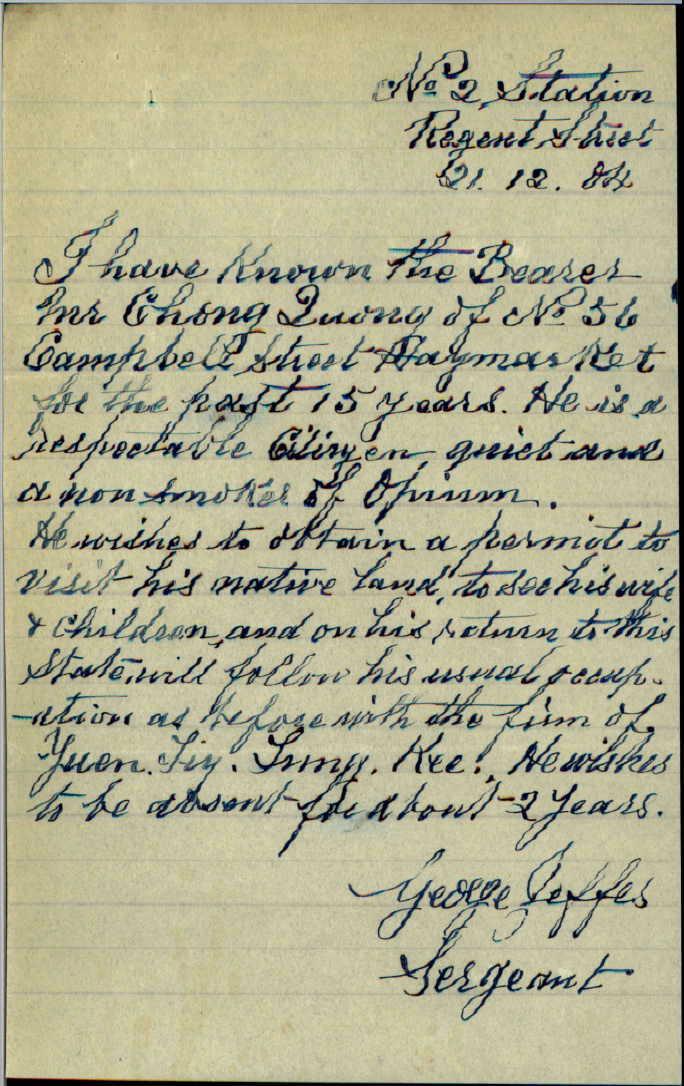 No 2 Station
Regent Street
21. 12. 04
I have Known the Bearer
Mr Chong Quong of No 56
Campbell Street Haymarket
for the past 15 years. He is a
respectable Citizen, quiet and
a non smoker of Opium.
He wishes to obtain a permit to
visit his native land, to see his wife
& children, and on his return to this
State, will follow his usual occup-
-ation as before with the firm of
Yuen. Tiy. Lung. Kee. He wishes
to be absent for about 2 years.
George
Sergeant